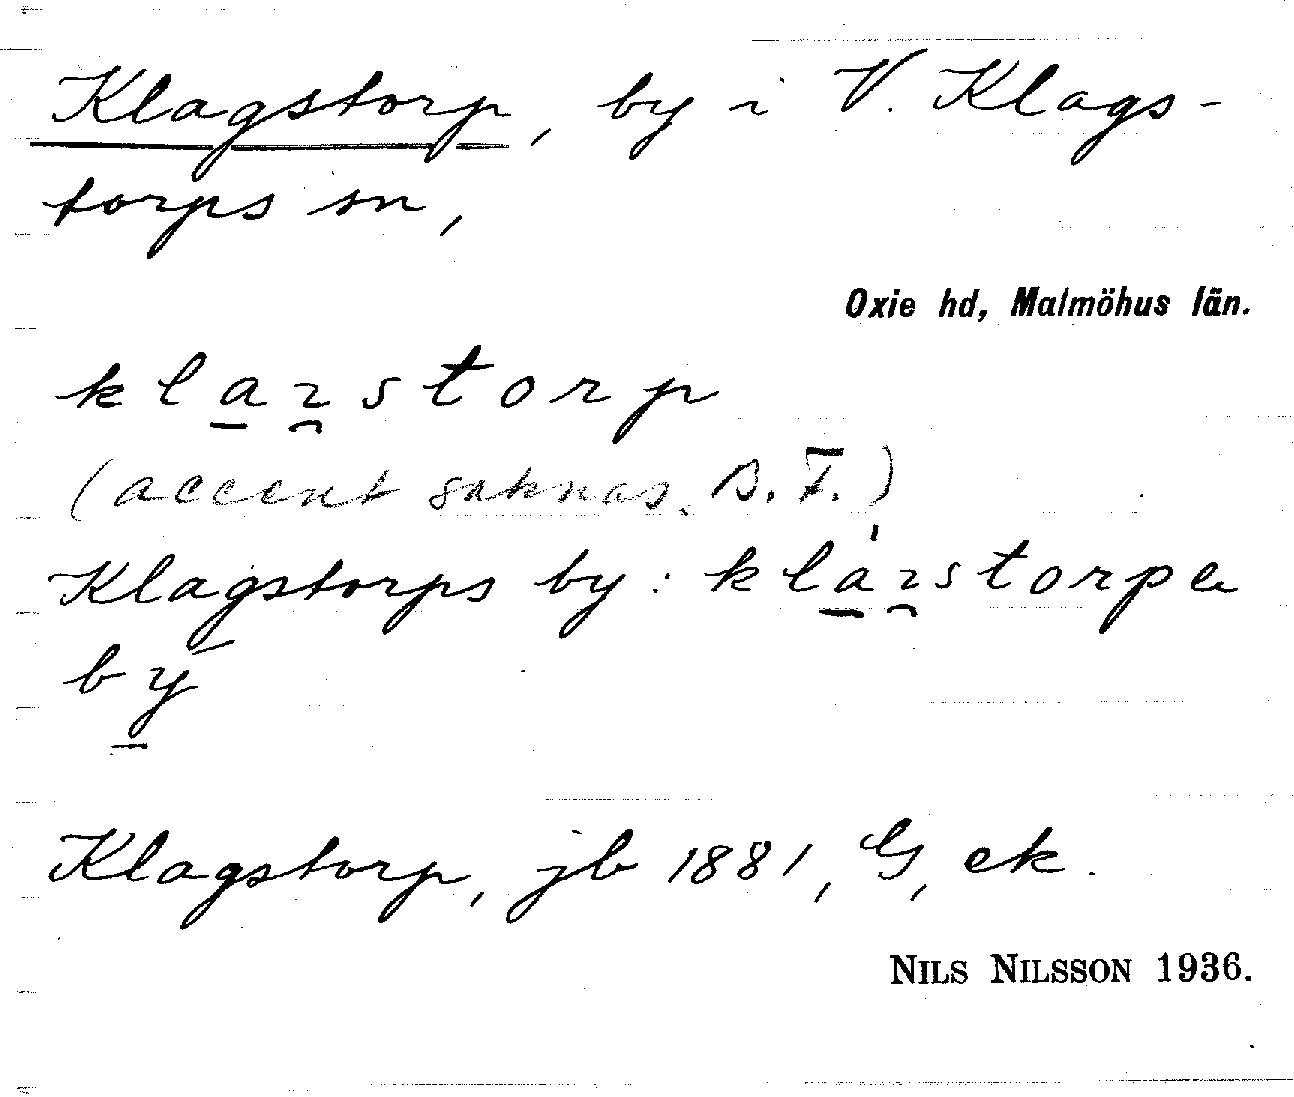 Klagstorp, by i V. Klags-
torps sn,
Oxie hd, Malmöhus län.
kla̠ı̯storp
(accent saknas. B. F.)
Klagstorps by: kla̠̍ı̯storpa
by̠
Klagstorp, jb 1881, G, ek.
NILS NILSSON 1936.